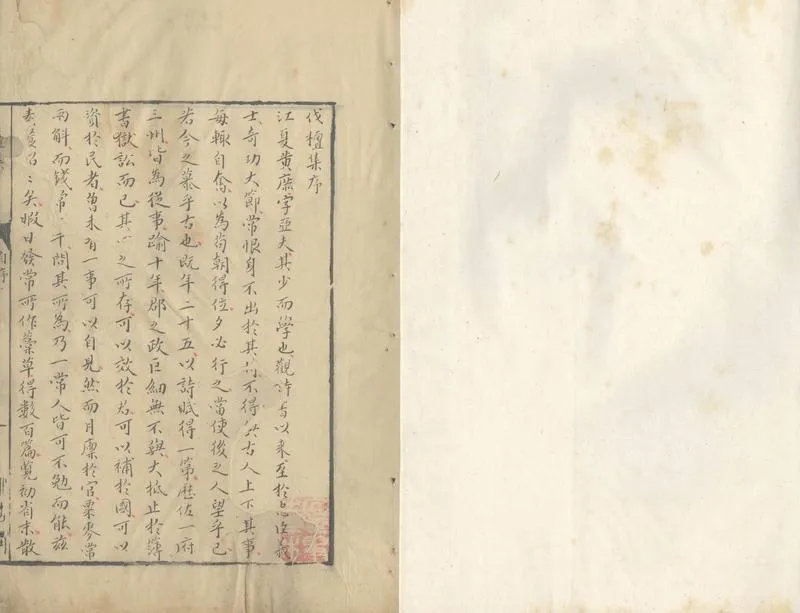 伐檀集序
江夏黃庶字亞夫其少而學也觀詩書以來至於忠臣義
士奇功大節常恨身不出於其時不得與古人上下其事
每輒自奮以為苟朝得位夕必行之當使後之人望乎已
若今之慕乎古也既年二十五以詩賦得一第歷佐一府
三州皆為從事踰十年郡之政巨細無不與大抵止於簿
書獄訟而已其心之所存可以效於君可以補於國可以
資於民者曾未有一事可以自見然而月廩於官粟麥常
兩斛而錢常千問其所為乃一常人皆可不勉而能茲
素〻矣暇日發常所作藁草得數百篇覽初省末散